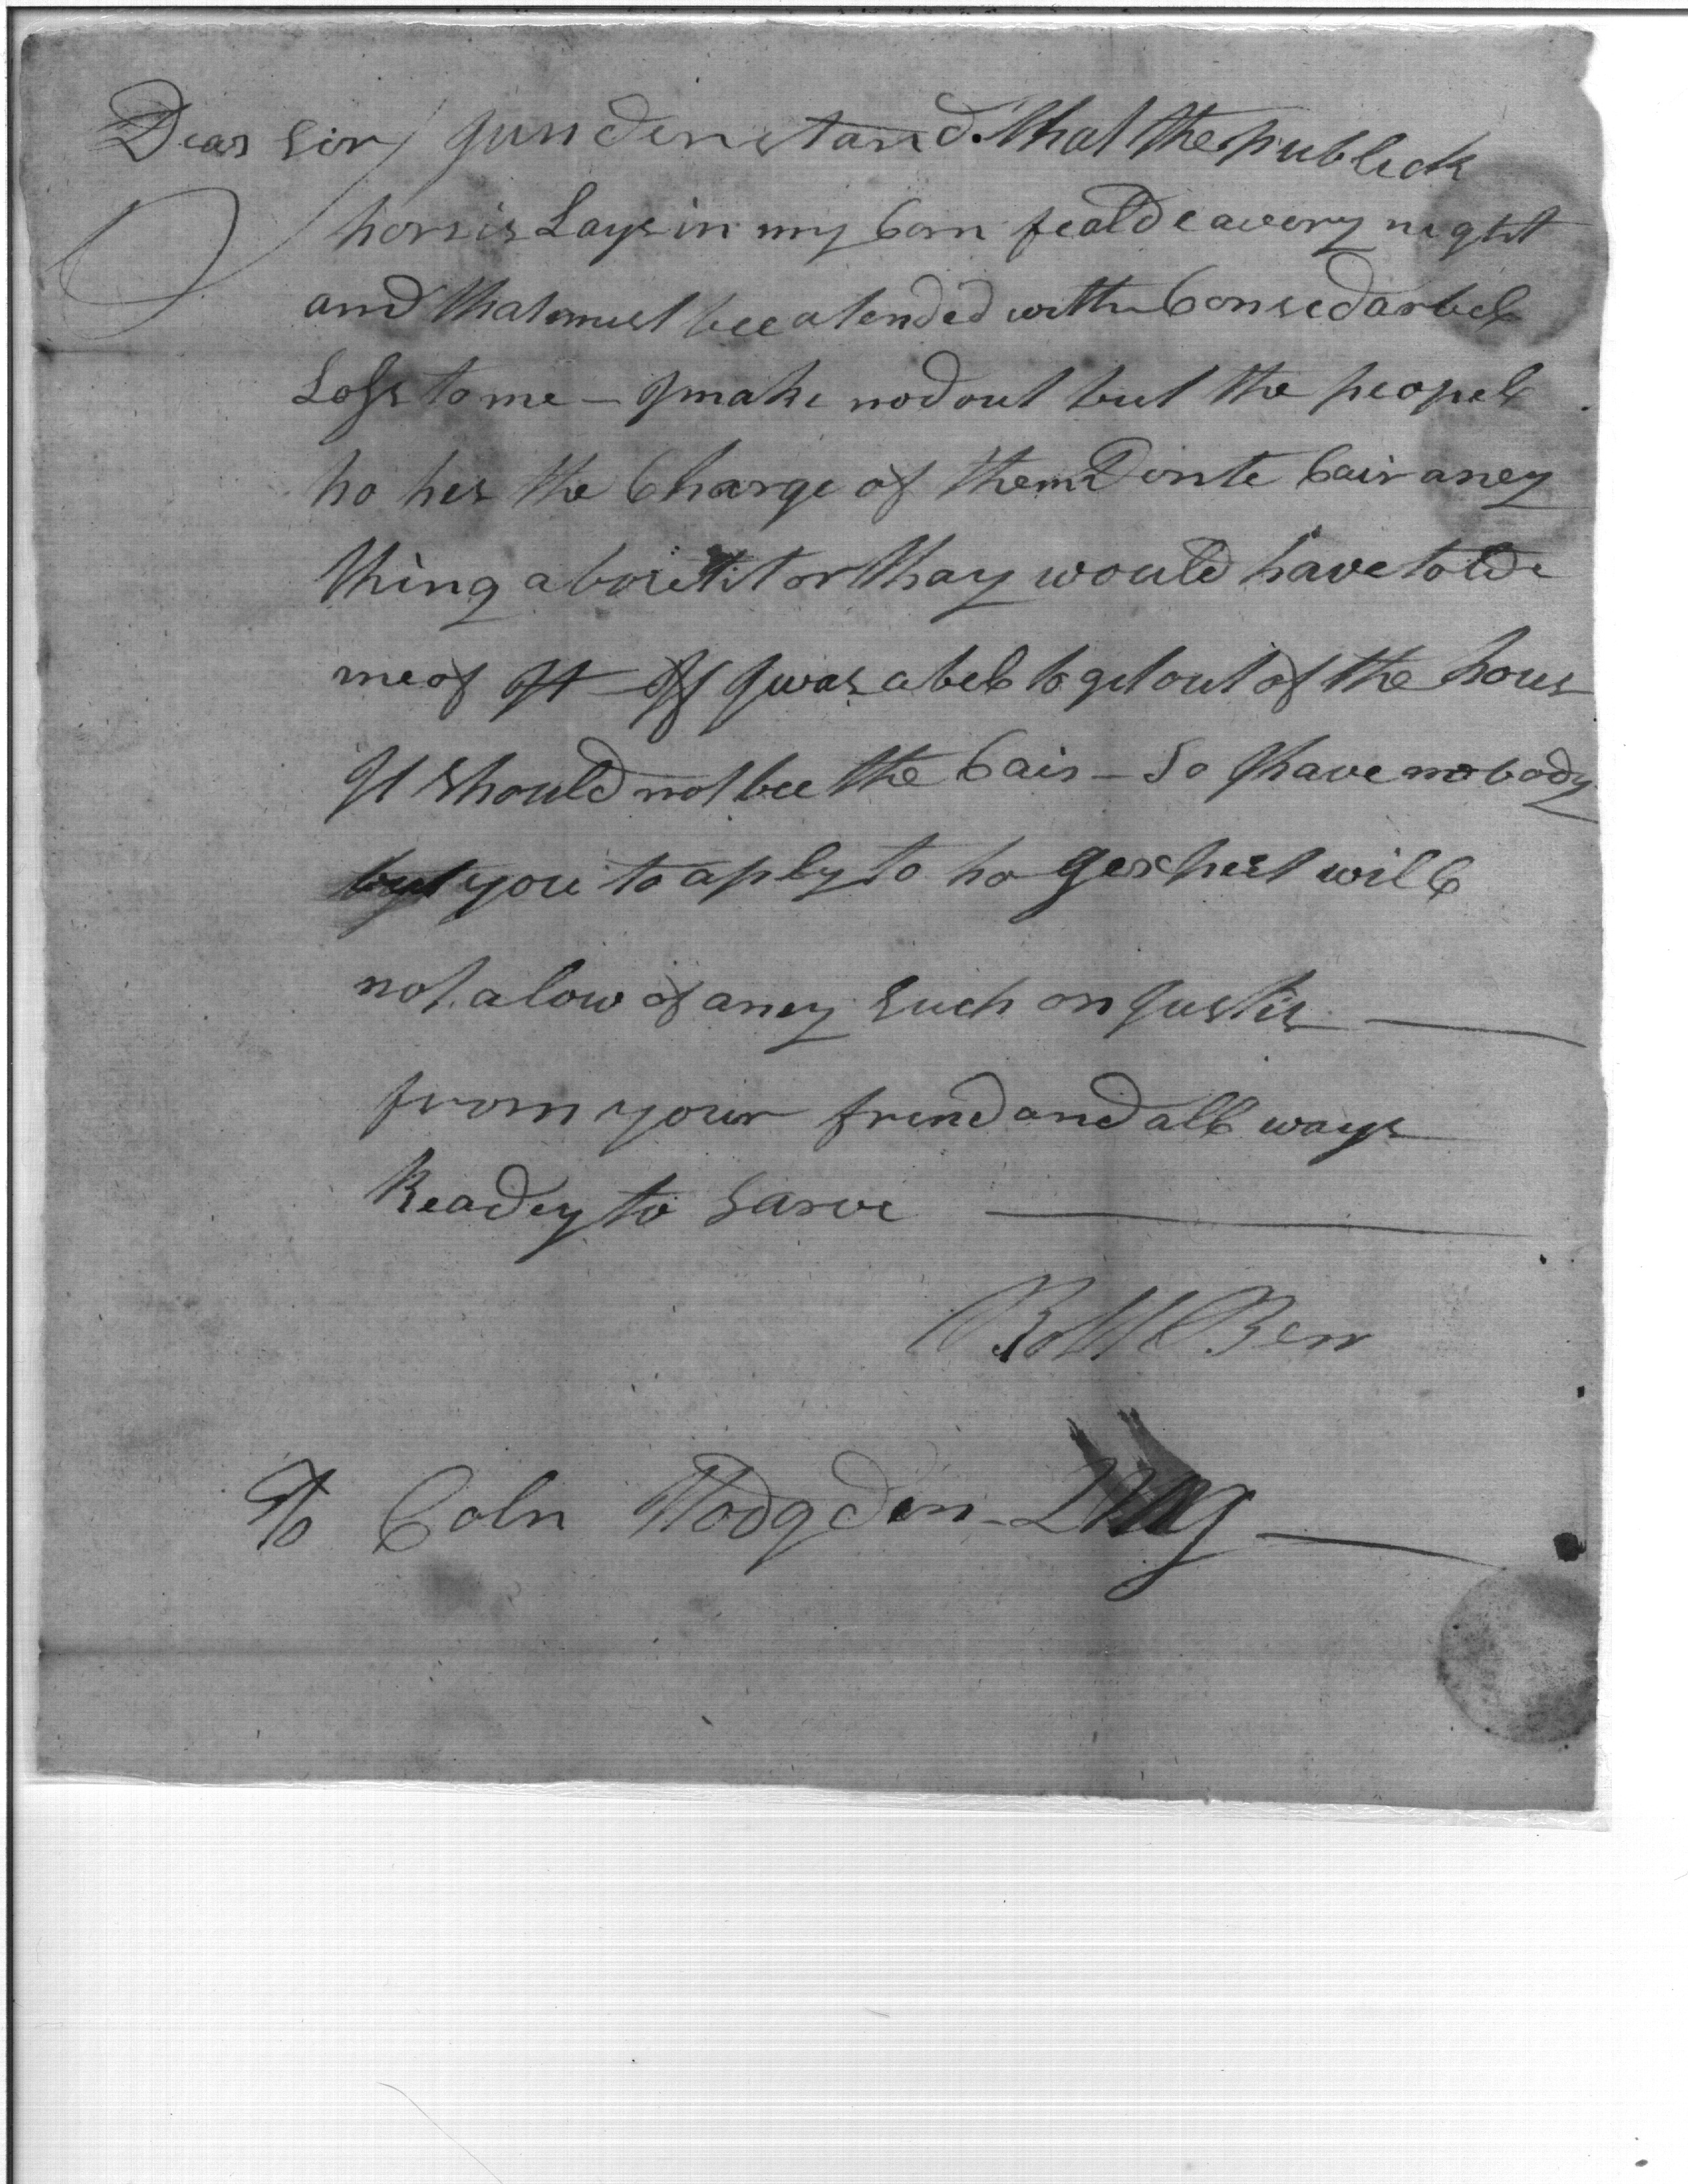 Dear Sir / I understand that the publick
horsis Lays in my Corn feald eavery night
and that must bee atended with Consedarbel
Loss to me – I make no dout but the peopel
ho hes the Charge of them Donte Cair aney
thing about it or thay would have tolde
me of It – If I was abel to git out of the hous
It should not bee the Cais – So I have nobody
but you to aply to ho I exspect will
not alow of aney such onJustis
from your frind and all ways
Readey to Sarve
Robt Ben
To Coln Hodgden QMG